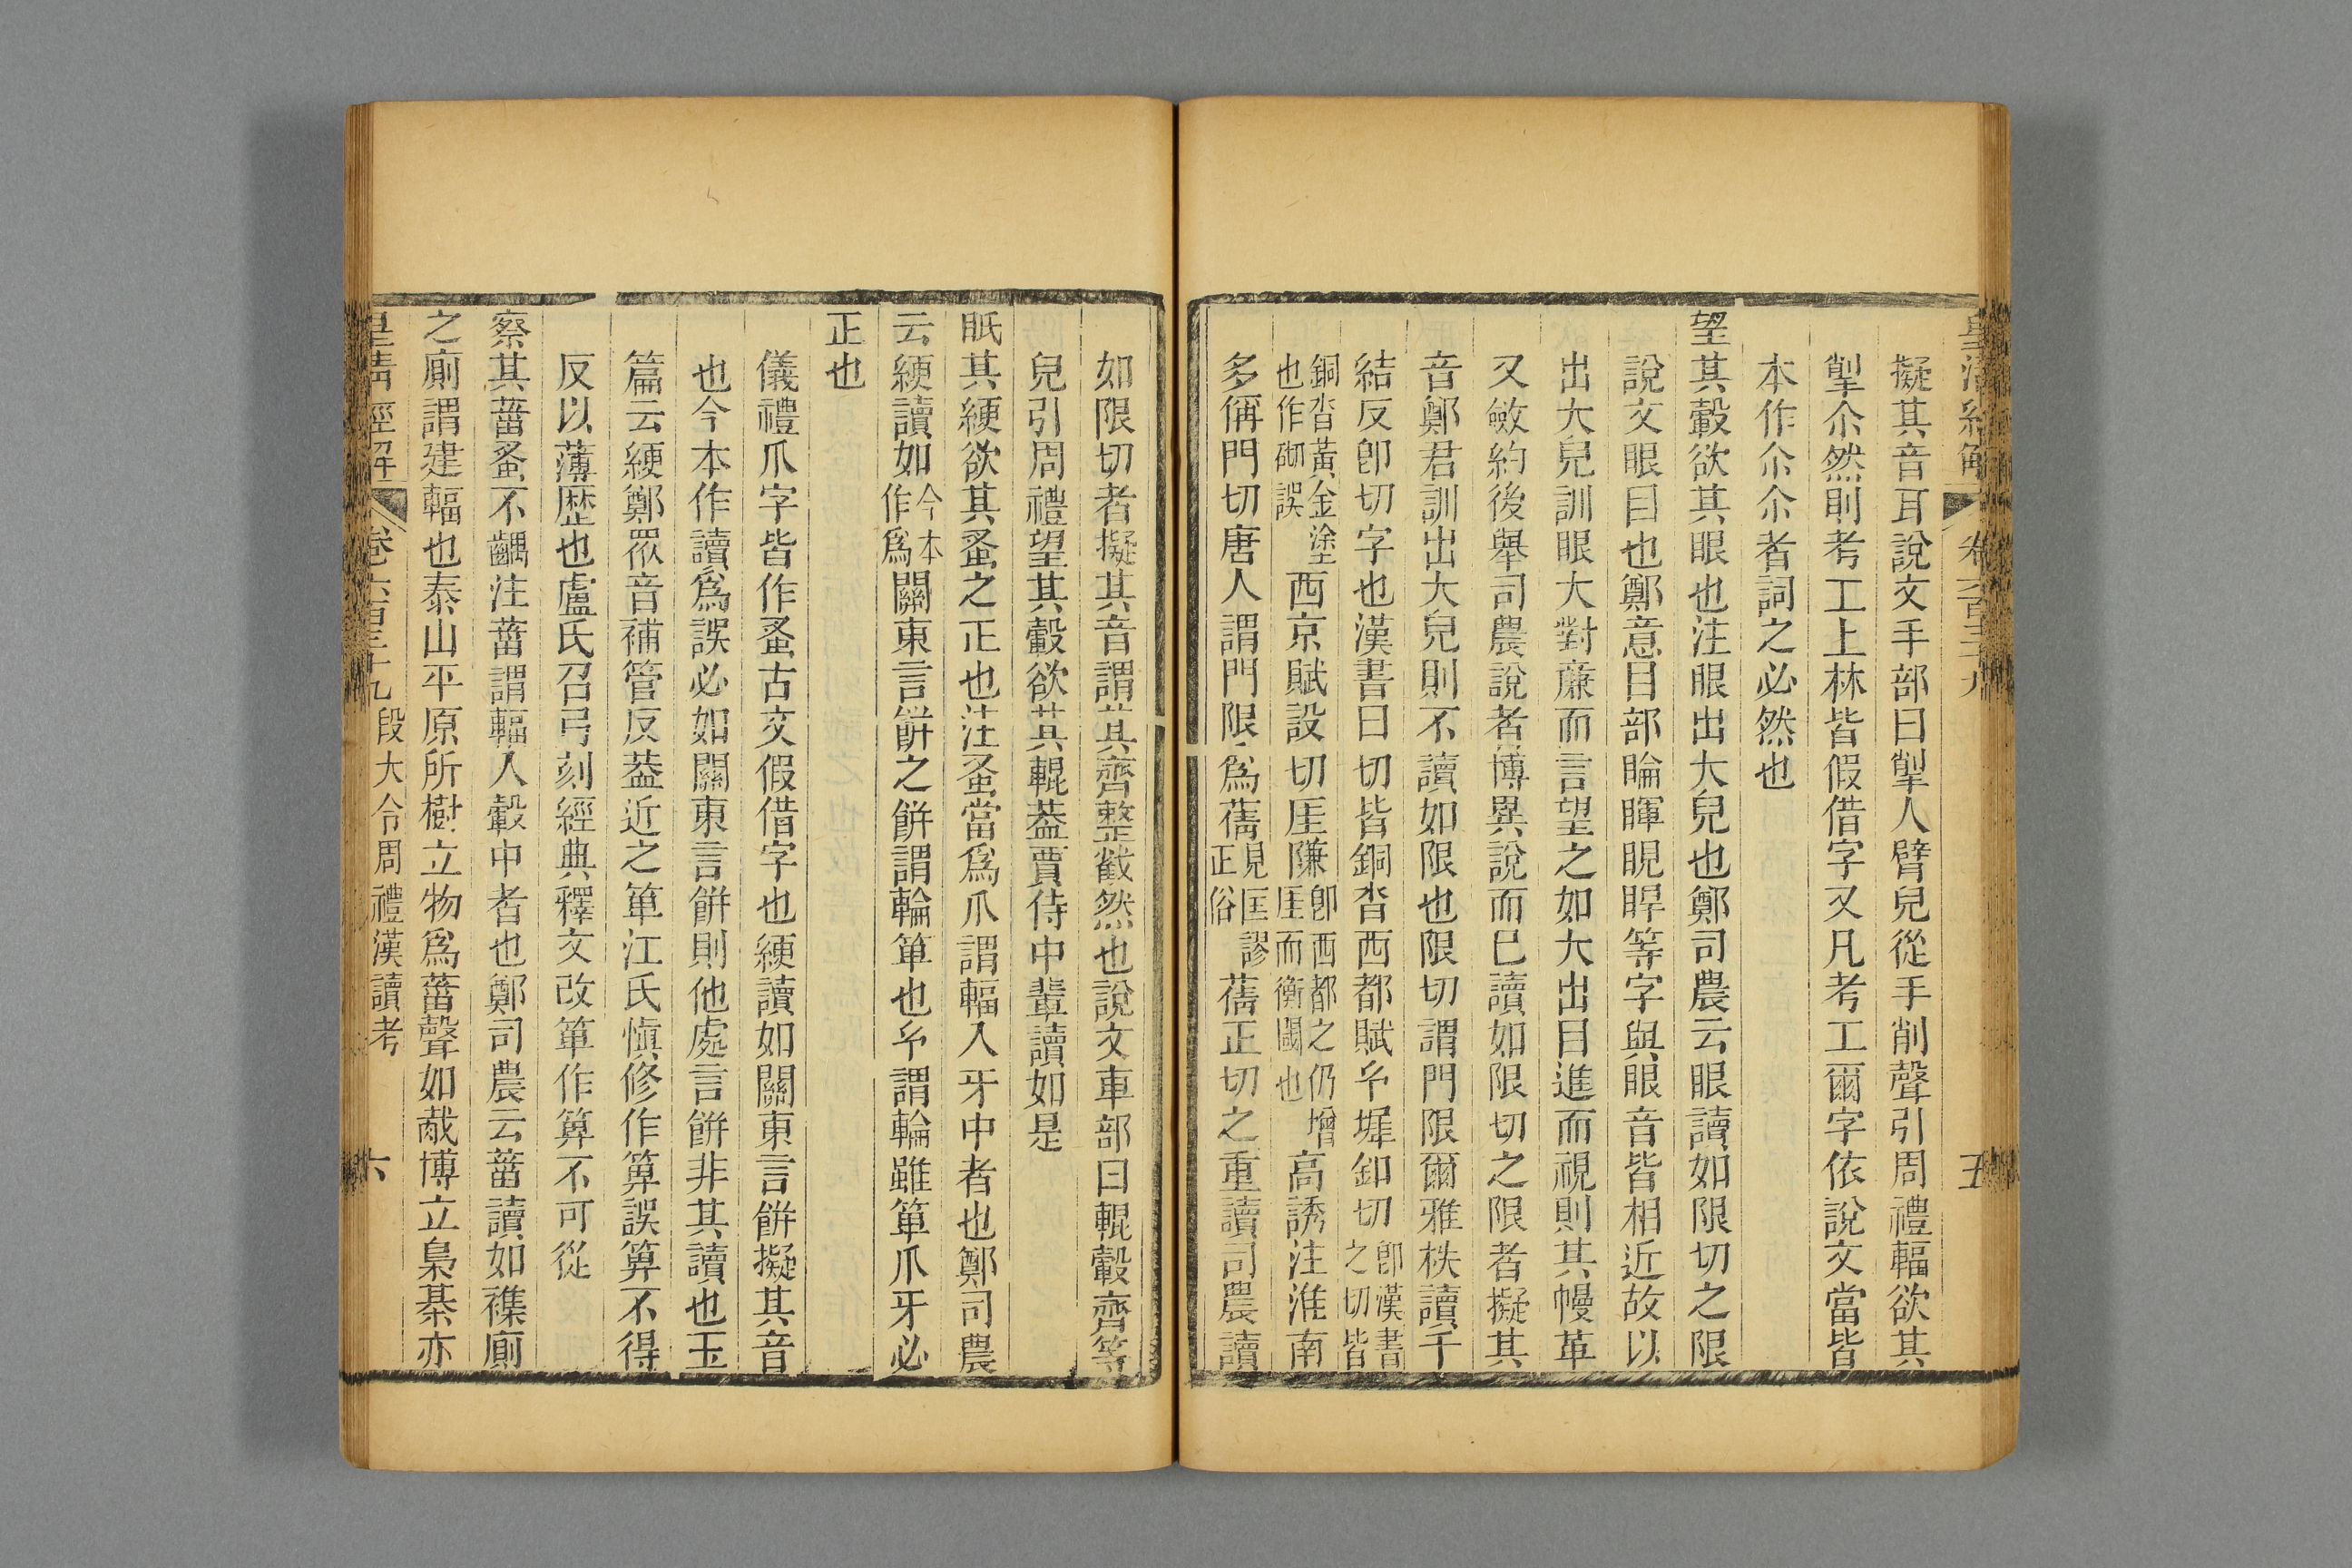 皇清經解 卷六百三十九 五
擬其音耳說文手部曰掣人臂皃從手削聲引周禮輻欲其
掣尒然則考工上林皆假借字又凡考工爾字依說文當皆
本作尒尒者詞之必然也
望其轂欲其眼也注眼出大皃也鄭司農云眼讀如限切之限
說文眼目也鄭意目部睔暉睍睅等字與眼音皆相近故以
出大皃訓眼大對廉而言望之如大出目進而視則其幔革
又斂約後舉司農說者博異說而巳讀如限切之限者擬其
音鄭君訓出大皃則不讀如限也限切謂門限爾雅柣讀千
結反卽切字也漢書曰切皆銅沓西都賦𠂞墀釦切卽漢書之切皆
銅沓黃金塗也作砌誤西京賦設切厓隒卽西都之仍增厓而衡閾也高誘注淮南
多偁門切唐人謂門限爲蒨見匡謬正俗蒨正切之重讀司農讀
如限切者擬其音謂其齊整截然也說文車部曰輥轂齊等
皃引周禮望其轂欲其輥葢賈侍中輩讀如是
眂其綆欲其蚤之正也注蚤當爲爪謂輻入牙中者也鄭司農
云綆讀如今本作爲關東言餅之餅謂輪箄也𠂞謂輪雖箄爪牙必
正也
儀禮爪字皆作蚤古文假借字也綆讀如關東言餅擬其音
也今本作讀爲誤必如關東言餅則他處言餅非其讀也玉
篇云綆鄭眾音補管反葢近之箄江氏愼修作箅誤箅不得
反以薄歴也盧氏召弓刻經典釋文改箄作箅不可從
察其葘蚤不齵注葘謂輻入轂中者也鄭司農云葘讀如襍廁
之廁謂建輻也泰山平原所樹立物爲葘聲如胾博立梟棊亦
皇清經解 卷六百三十九 段大令周禮漢讀考 六